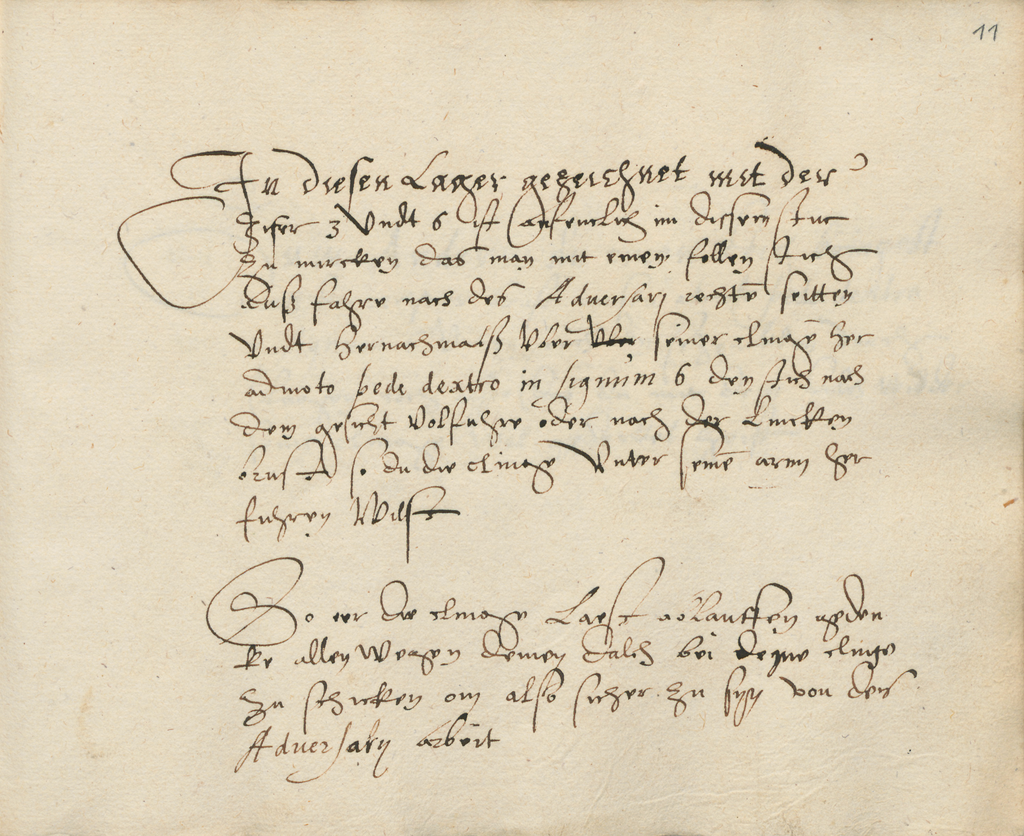 11
In diesen Lager gezeichnet mit der
Zifer 3 Vndt 6 ist anfenclich im dissem stuc
Zu mircken das man mit einen follen stich
auß fahre nach des Adversarj rechte seitten
Vndt hernachmalß Vber seiner clinge her
admoto pede dextro in signum 6 den stich nach
dem gesicht Volfuhre oder nach der Lincken
brust so du die clinge Vnter seine arm her
fuhren Wilst
So er die clinge Laest ablauffen geden
ke allen Wegen deinen dalch bei deine clinge
Zu schicken om also sicher Zu syn von des
Adversarij arbeit